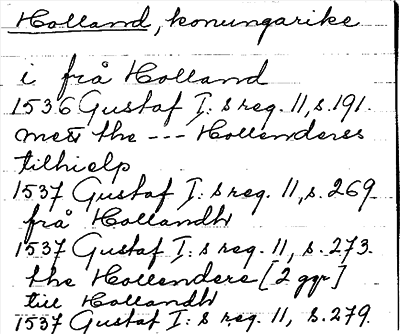 Holland, konungarike
i frå Holland
1536 Gustaf I:s reg. 11, s. 191.
mett the --- Hollenderes
tilhielp
1537 Gustaf I:s reg. 11, s. 269
frå Hollandh
1537 Gustaf I:s reg. 11, s. 273.
the Hollendere [2 ggr]
till Hollandh
1537 Gustaf I:s reg. 11, s. 279